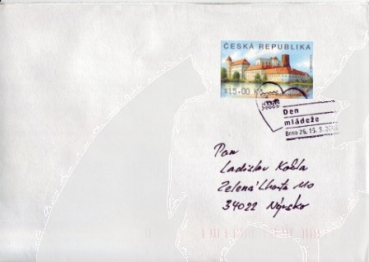 ČESKÁ REPUBLIKA
15.00 Kč
Den
mládeže
Brno 26, 15. 3.
Pan
Ladislav
Zelená Lhota 110
34022 Nýrsko